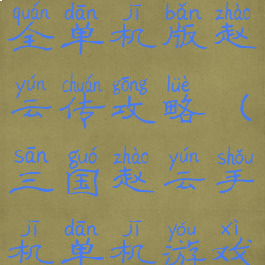 quán dān jī bǎn zhào
全单机版赵
yún chuán gōng lüè
云传攻略(
sān guó zhào yún shǒu
三国赵云手
jī dān jī yóu xì
机单机游戏